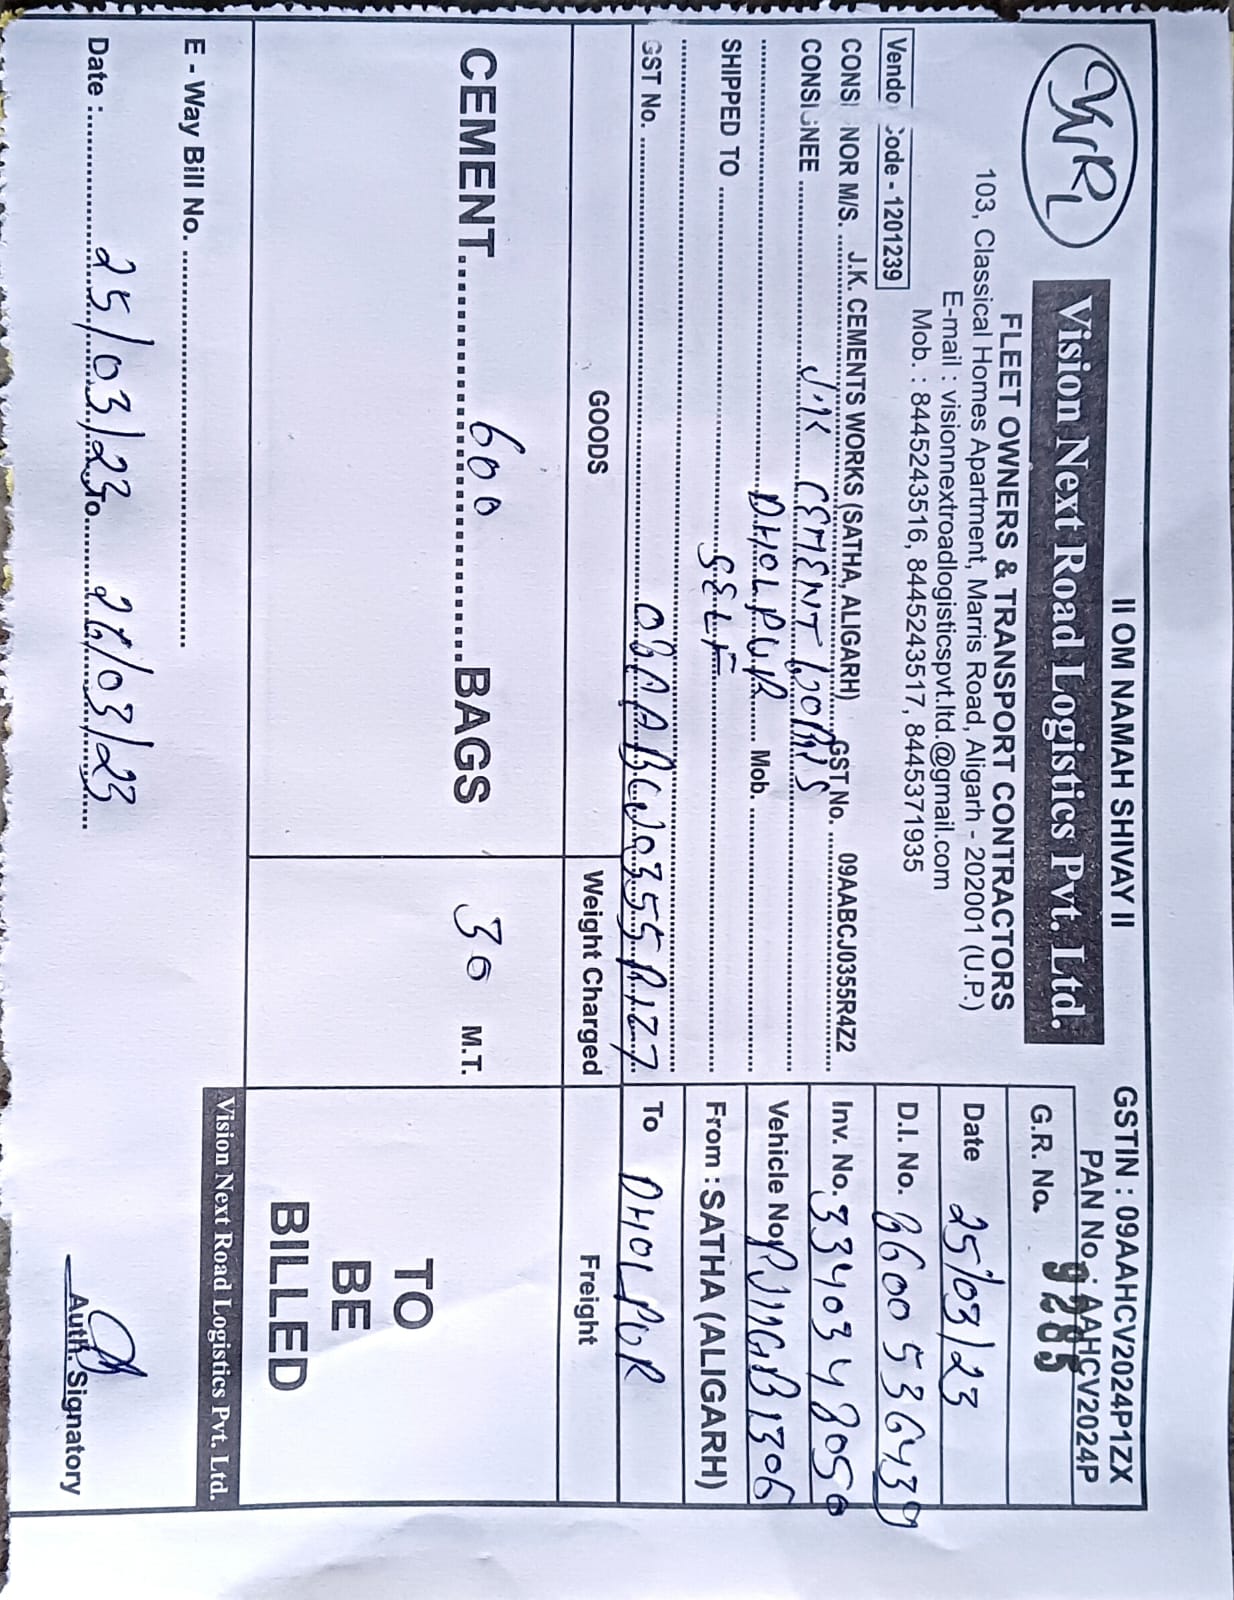 VNRL
II OM NAMAH SHIVAY II
Vision Next Road Logistics Pvt. Ltd.
FLEET OWNERS & TRANSPORT CONTRACTORS
103, Classical Homes Apartment, Marris Road, Aligarh - 202001 (U.P.)
E-mail : visionnextroadlogisticspvt.ltd.@gmail.com
Mob. : 8445243516, 8445243517, 8445371935
GSTIN : 09AAHCV2024P1ZX
PAN No. : AAHCV2024P
G.R. No. 9285
Date 25/03/23
D.I. No. 8600536439
Inv. No. 3340348050
Vehicle No RJ11GB1306
From : SATHA (ALIGARH)
To DHOLPUR
Vendo Code - 1201239
CONSI NOR M/S. J.K. CEMENTS WORKS (SATHA, ALIGARH) GST No. 09AABCJ0355R4Z2
CONSIGNEE J.K CEMENT WORKS
DHOLPUR Mob.
SHIPPED TO SELF
GST No. 08AABCJ0355R1Z7
GOODS Weight Charged Freight
CEMENT 600 BAGS 30 M.T.
TO
BE
BILLED
Vision Next Road Logistics Pvt. Ltd.
E - Way Bill No.
Date : 25/03/23 To 26/03/23
Auth. Signatory